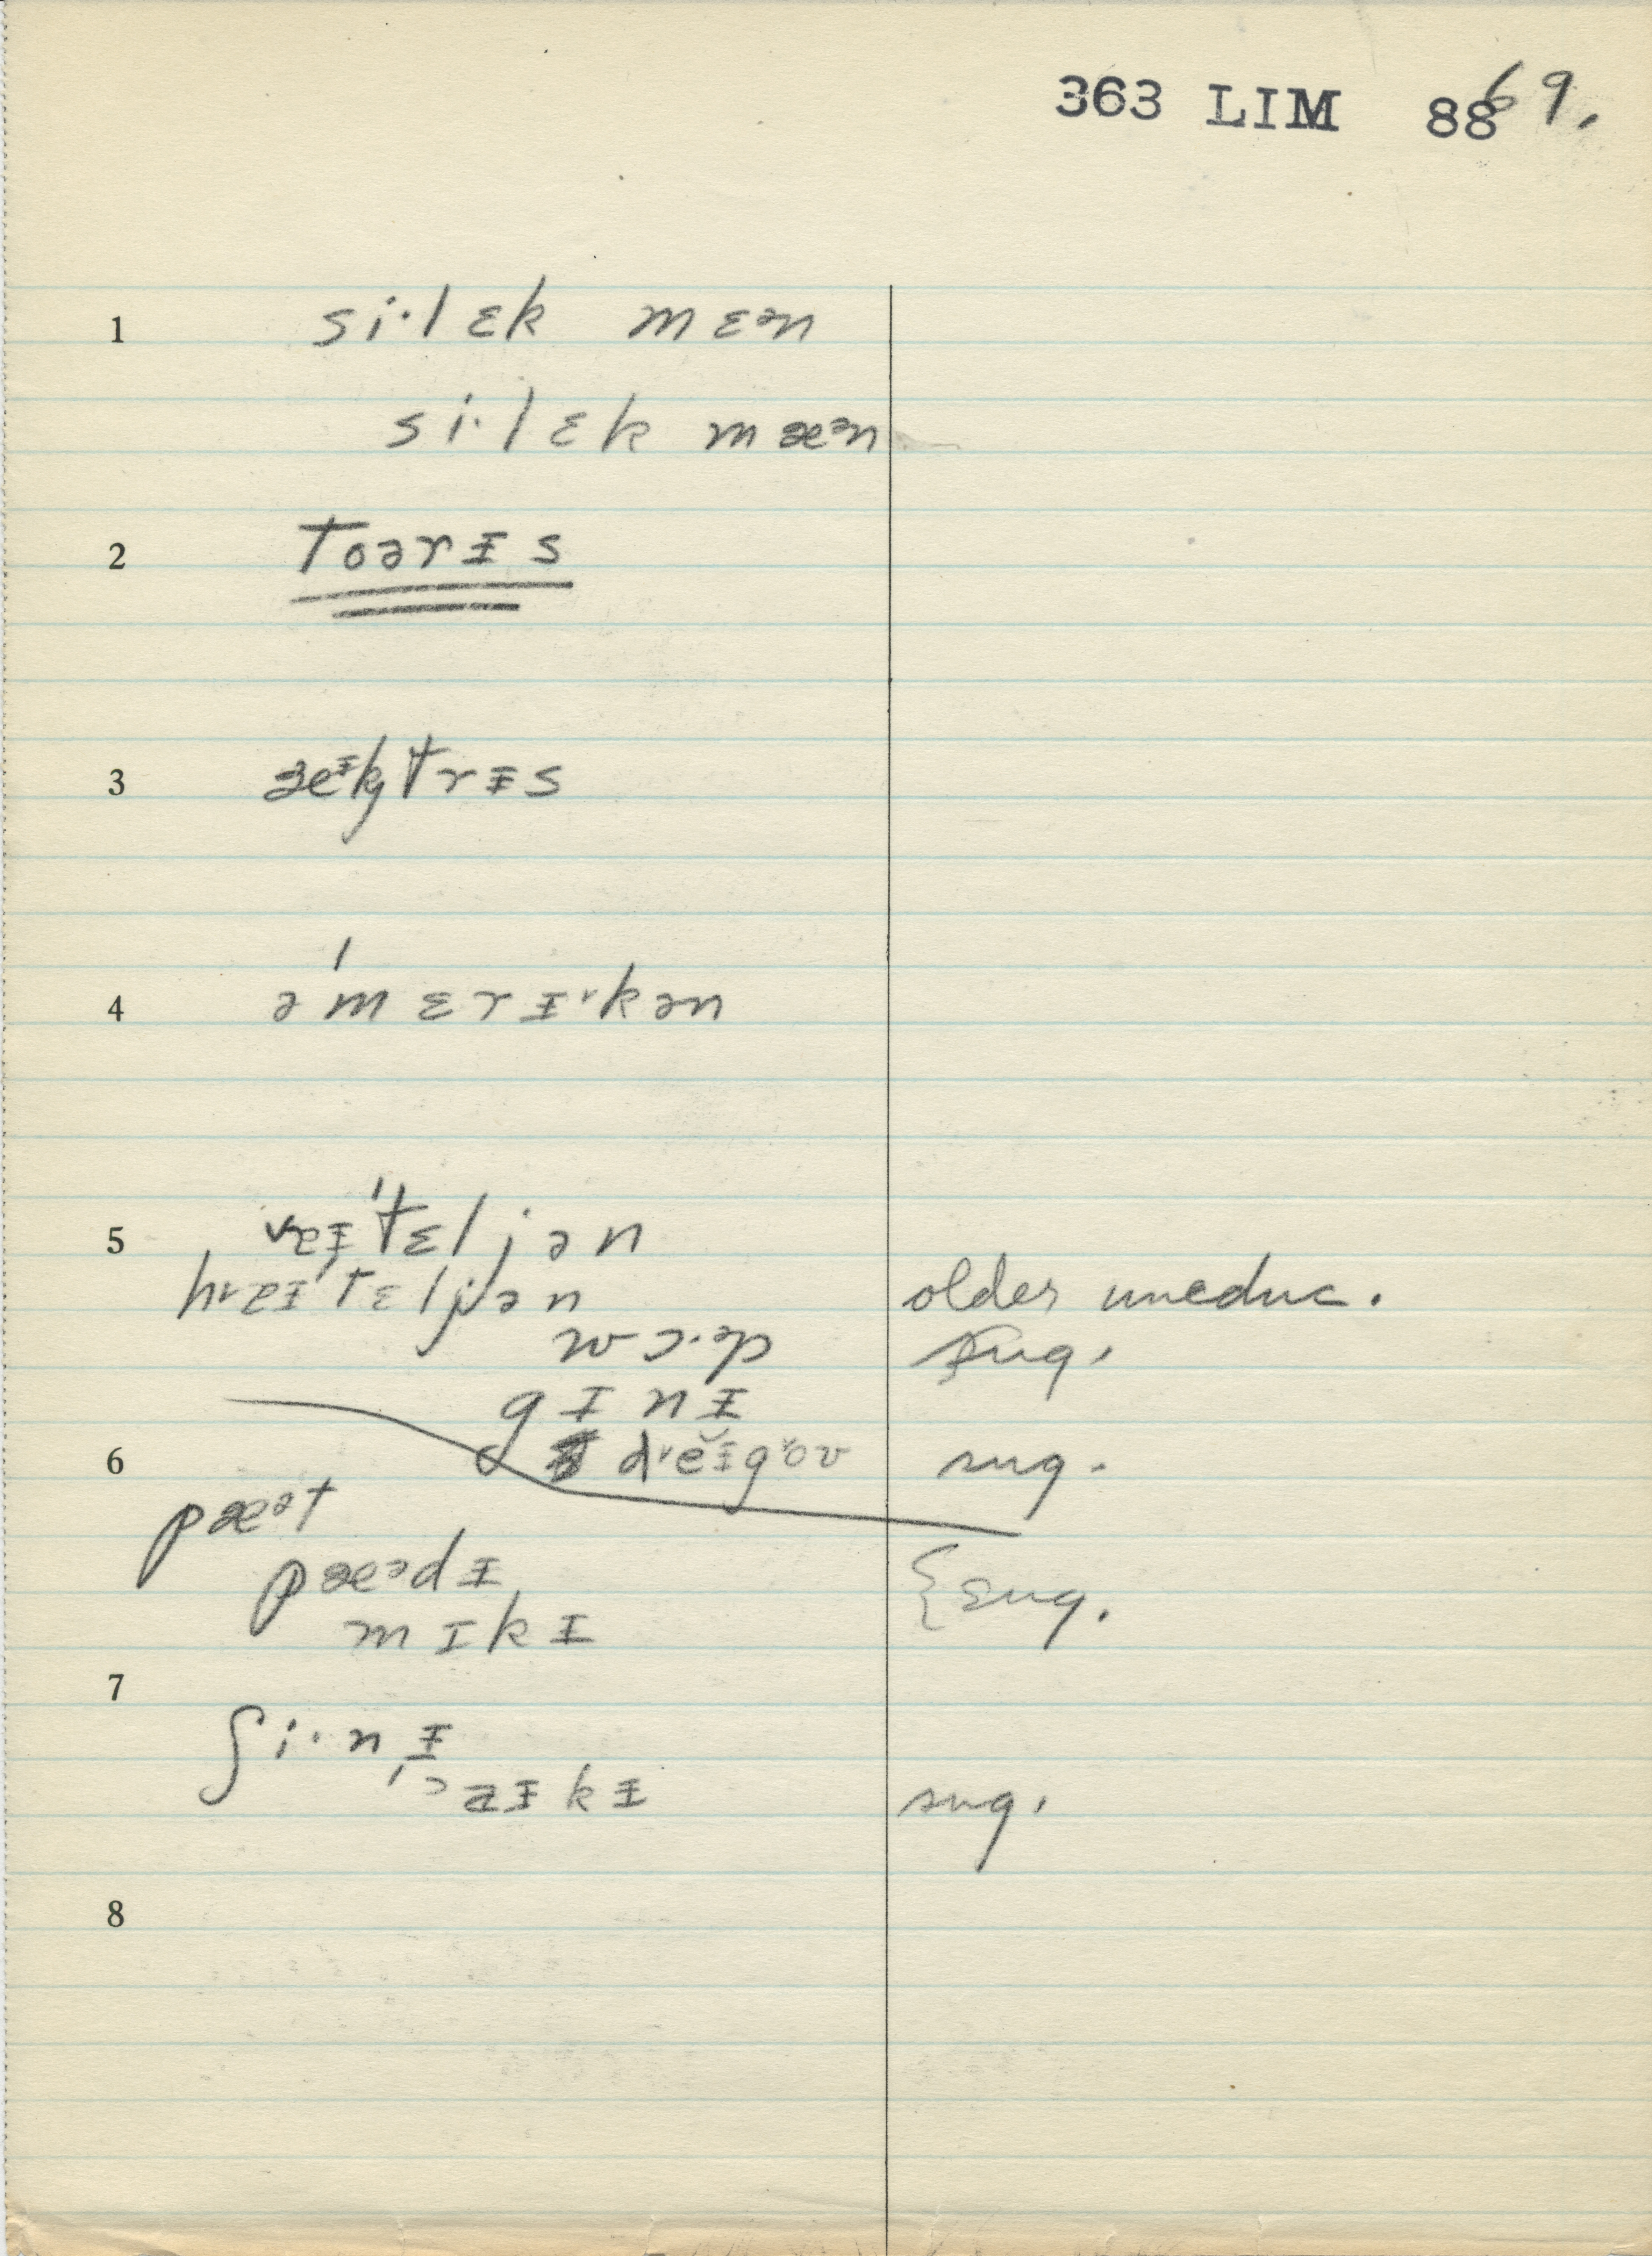 363 LIM 88 69.
1 si·lɛk mɛᵊn
si·lɛk mæᵊn
2 toərɨs
3 æᵻktrɨs
4 əˈmɛrɨ˞kən
5 ɨˈtɛljən
ˈtɛljən older uneduc.
wɔ·ᵊp sug.
gɪnɨ
6 d˞ĕɨgoʊ sug.
pæᵊt
pæᵊdɨ
mɪkɨ { sug.
7 ʃi·nɨ
kɨ sug.
8